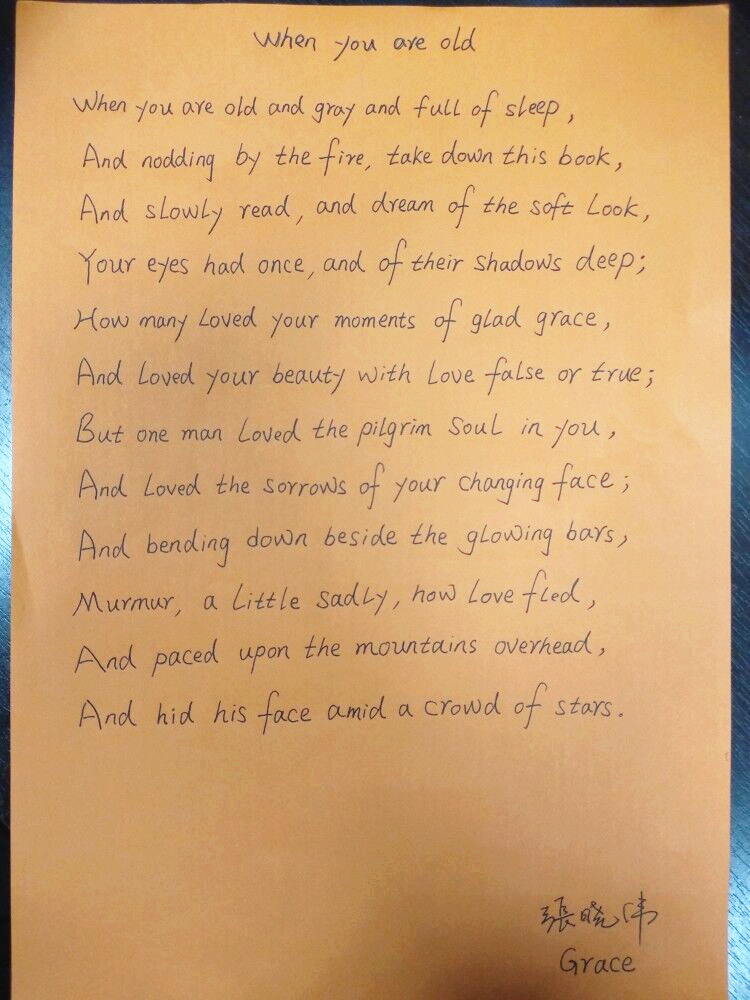 When you are old
When you are old and gray and full of sleep,
And nodding by the fire, take down this book,
And slowly read, and dream of the soft Look,
Your eyes had once, and of their shadows deep;
How many Loved your moments of glad grace,
And Loved your beauty with Love false or true;
But one man Loved the pilgrim Soul in you,
And Loved the sorrows of your changing face;
And bending down beside the glowing bars,
Murmur, a Little sadly, how Love fled,
And paced upon the mountains overhead,
And hid his face amid a crowd of stars.
張晓伟
Grace